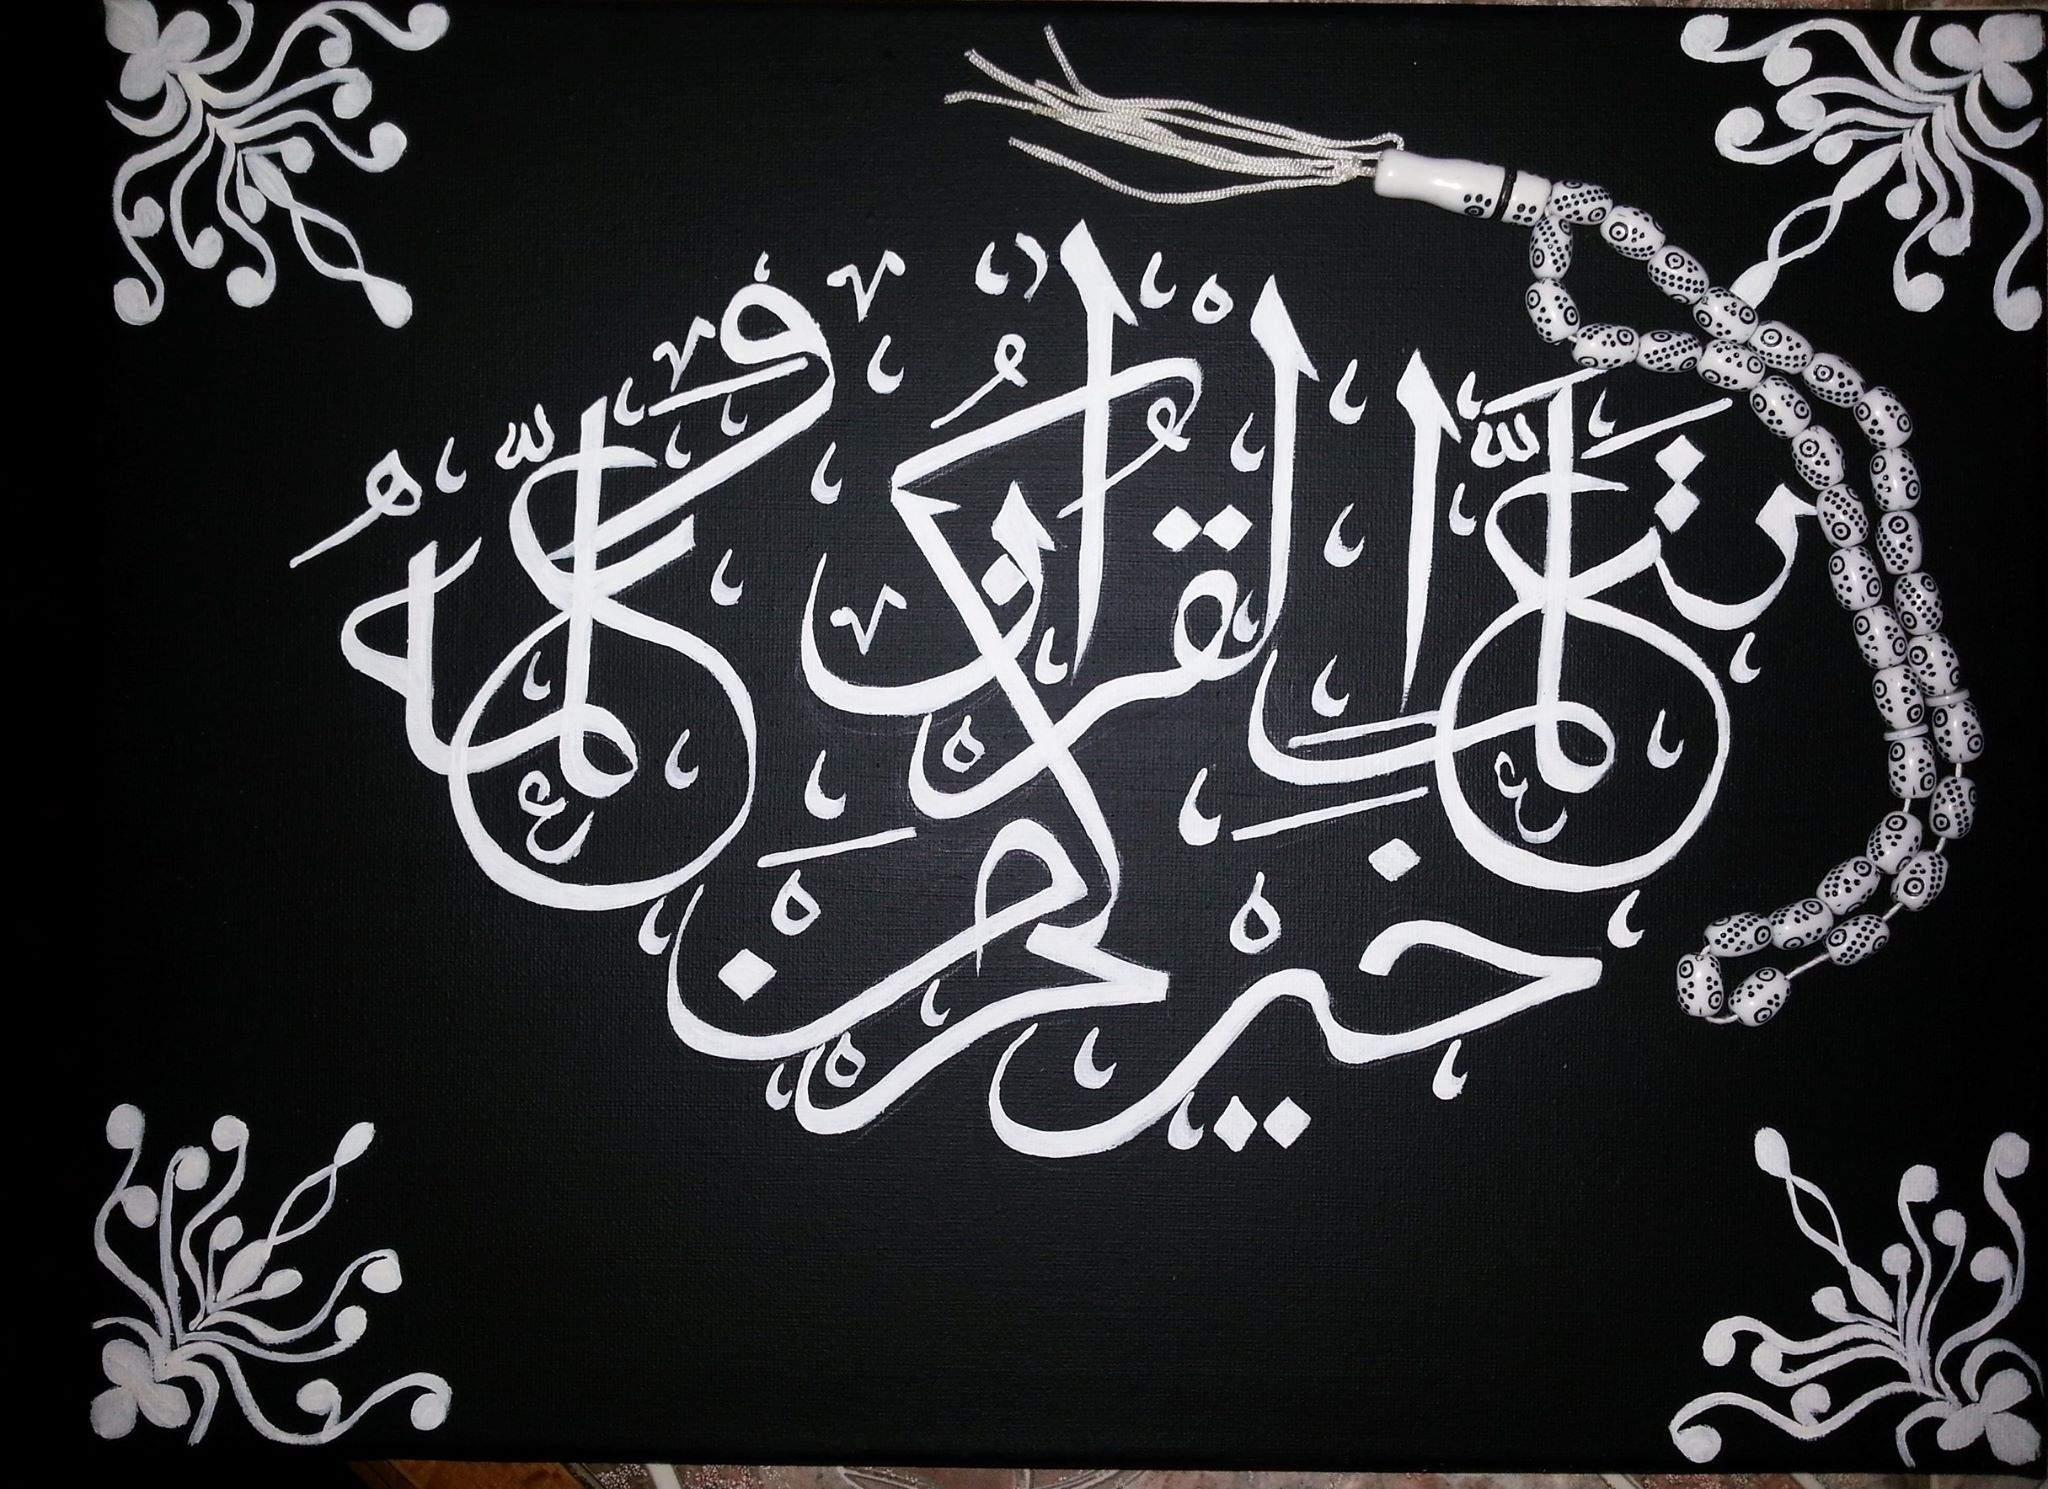 خَيْرُكُمْ مَنْ
تَعَلَّمَ الْقُرْآنَ وَعَلَّمَهُ